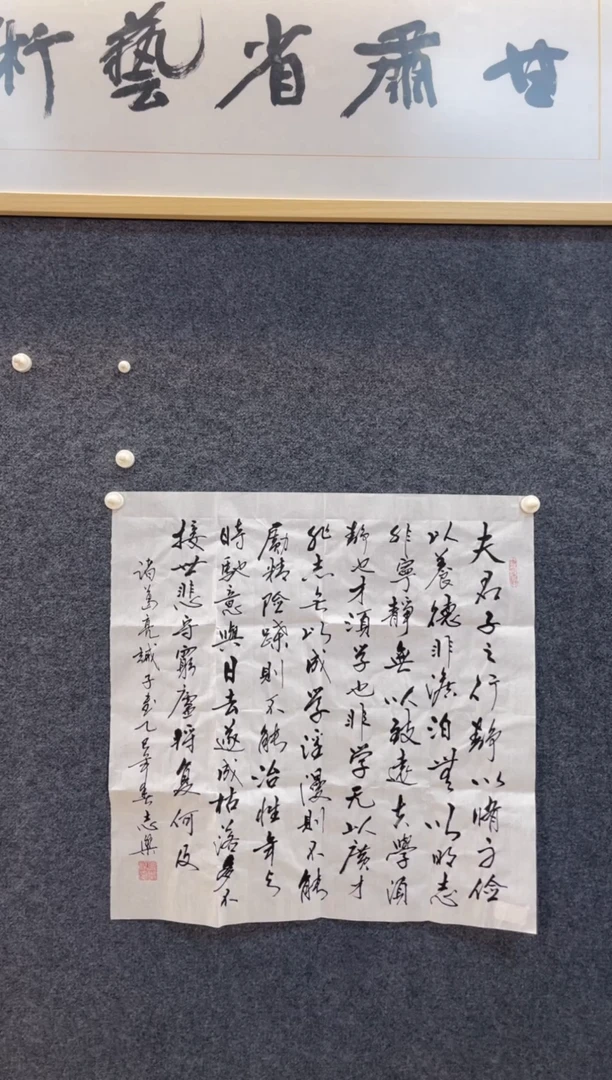 甘肅省藝
夫君子之行静以脩身俭
以養德非澹泊無以明志
非寧靜無以致遠夫學須
静也才須学也非学无以廣才
非志无以成学淫漫則不能
勵精险躁則不能治性年与
時馳意與日去遂成枯落多不
接世悲守窮廬将复何及
诸葛亮誡子書乙巳年春志樂